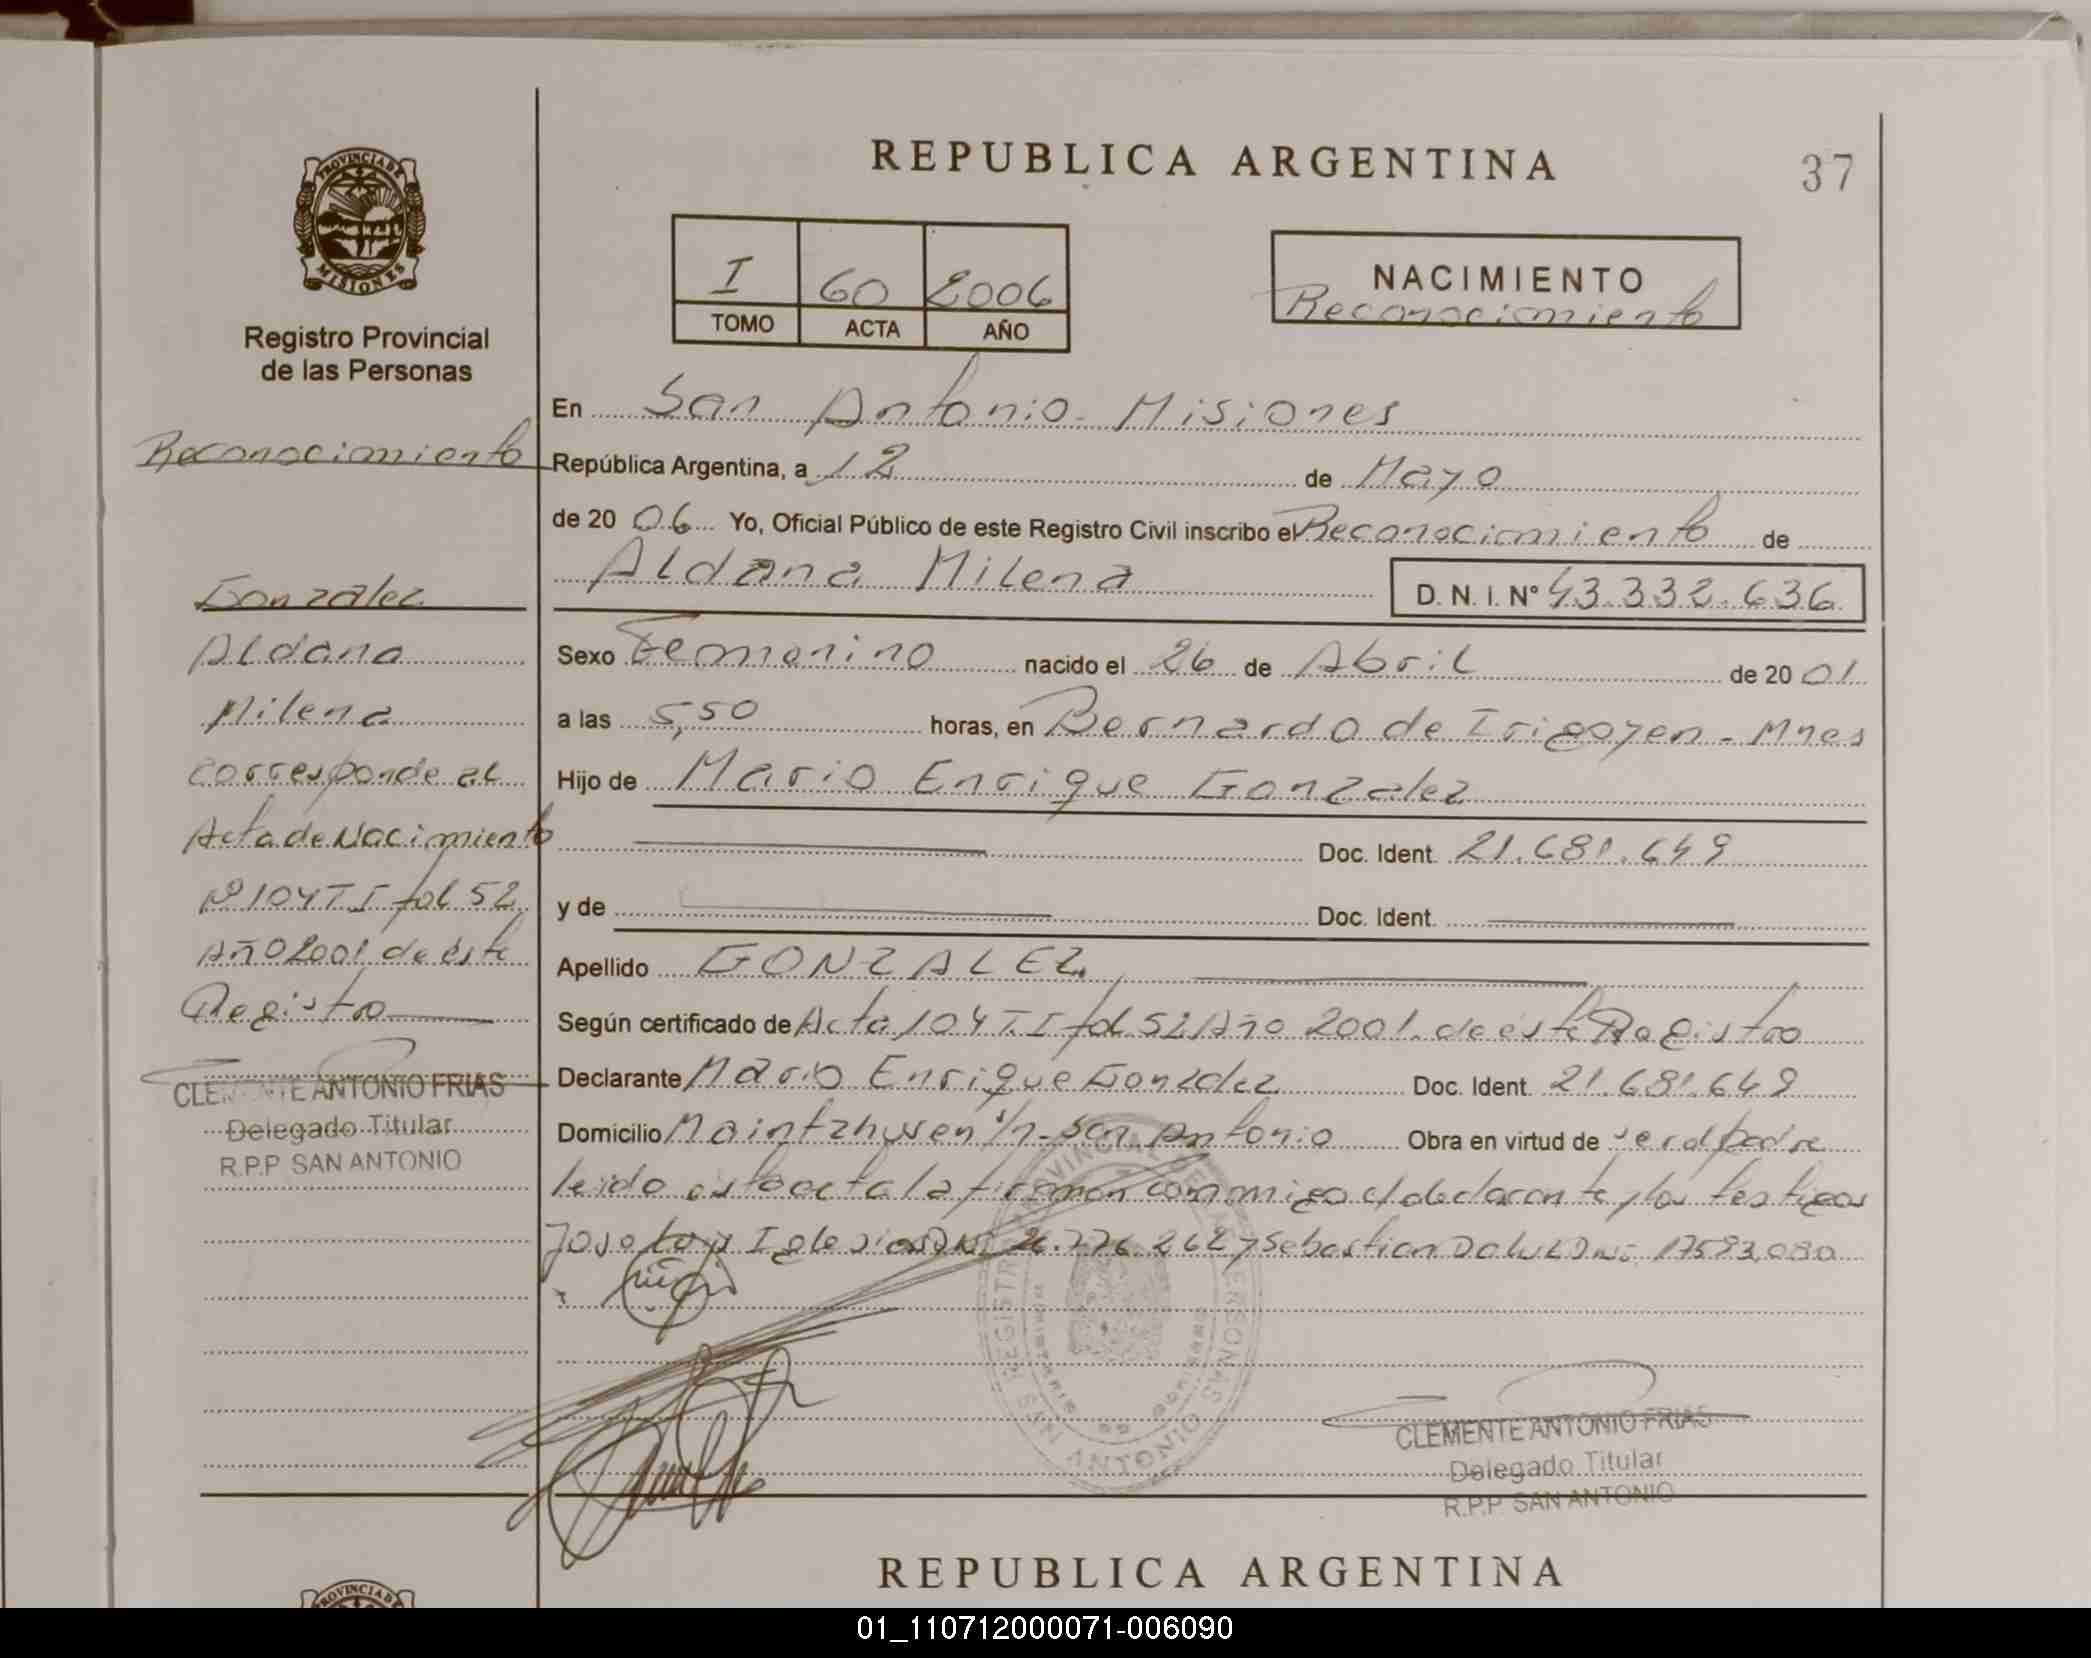 REPUBLICA ARGENTINA
37
PROVINCIA DE
MISIONES
Registro Provincial
de las Personas
I 60 2006
TOMO ACTA AÑO
NACIMIENTO
Reconocimiento
Reconocimiento
Gonzalez
Aldana
Milena
Corresponde al
Acta de Nacimiento
Nº 104 T I fol 52
Año 2001 de éste
Registro
CLEMENTE ANTONIO FRIAS
Delegado Titular
R.P.P SAN ANTONIO
En San Antonio - Misiones
República Argentina, a 12 de Mayo
de 20 06 Yo, Oficial Público de este Registro Civil inscribo el Reconocimiento de
Aldana Milena D. N. I. Nº 43.332.636
Sexo Femenino nacido el 26 de Abril de 20 01
a las 5,50 horas, en Bernardo de Irigoyen - Mnes
Hijo de Mario Enrique Gonzalez
Doc. Ident. 21.681.649
y de Doc. Ident.
Apellido GONZALEZ
Según certificado de Acta 104 T. I fol 52 Año 2001 de éste Registro
Declarante Mario Enrique Gonzalez Doc. Ident. 21.681.649
Domicilio s/n - San Antonio Obra en virtud de ser el padre
leido esta acta la firman conmigo el declarante y los testigos
Jose Iglesias DNI 26.776.262 y Sebastian DNI 17593.080
REGISTRO PROVINCIAL DE LAS PERSONAS
MINISTERIO DE GOBIERNO
SAN ANTONIO
CLEMENTE ANTONIO FRIAS
Delegado Titular
R.P.P SAN ANTONIO
PROVINCIA DE
REPUBLICA ARGENTINA
01_110712000071-006090